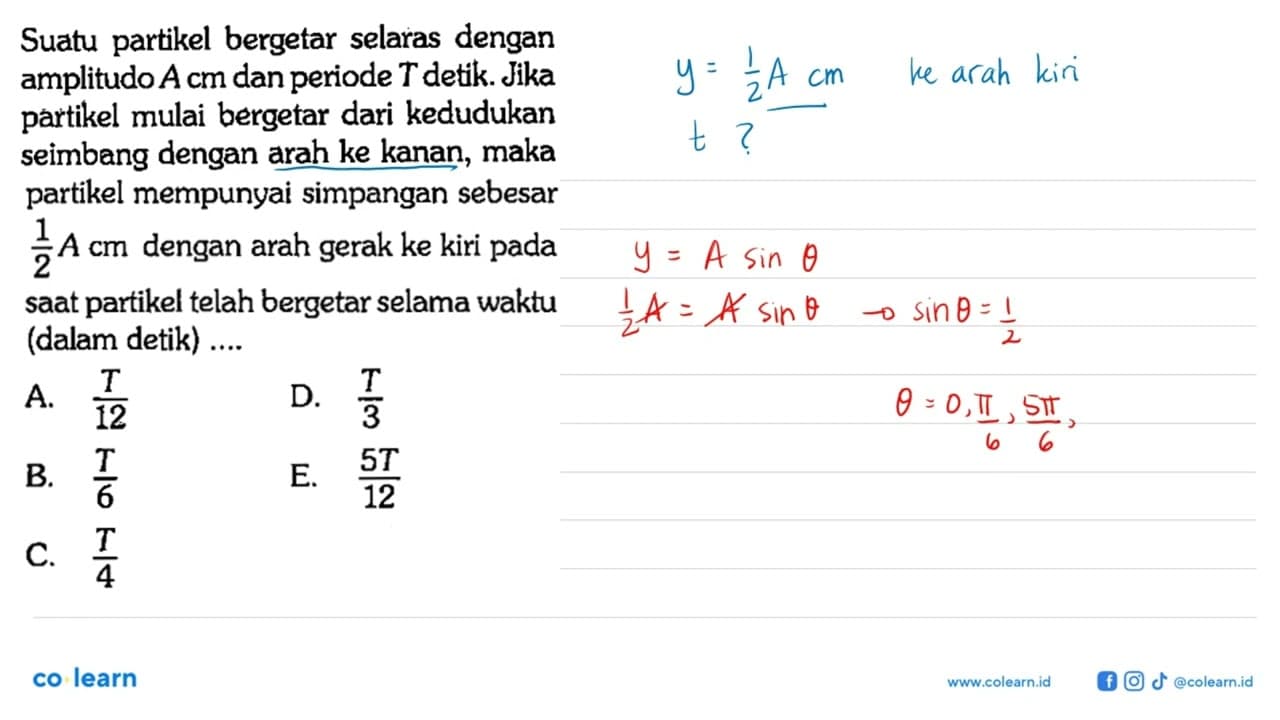 Suatu partikel bergetar selaras dengan
amplitudo A cm dan periode T detik. Jika
partikel mulai bergetar dari kedudukan
seimbang dengan arah ke kanan, maka
partikel mempunyai simpangan sebesar
1/2 A cm dengan arah gerak ke kiri pada
saat partikel telah bergetar selama waktu
(dalam detik) ....
A. T/12
B. T/6
C. T/4
D. T/3
E. 5T/12
y = 1/2 A cm ke arah kiri
t ?
y = A sin θ
1/2 A = A sin θ → sin θ = 1/2
θ = 0, π/6, 5π/6,
co learn
www.colearn.id @colearn.id